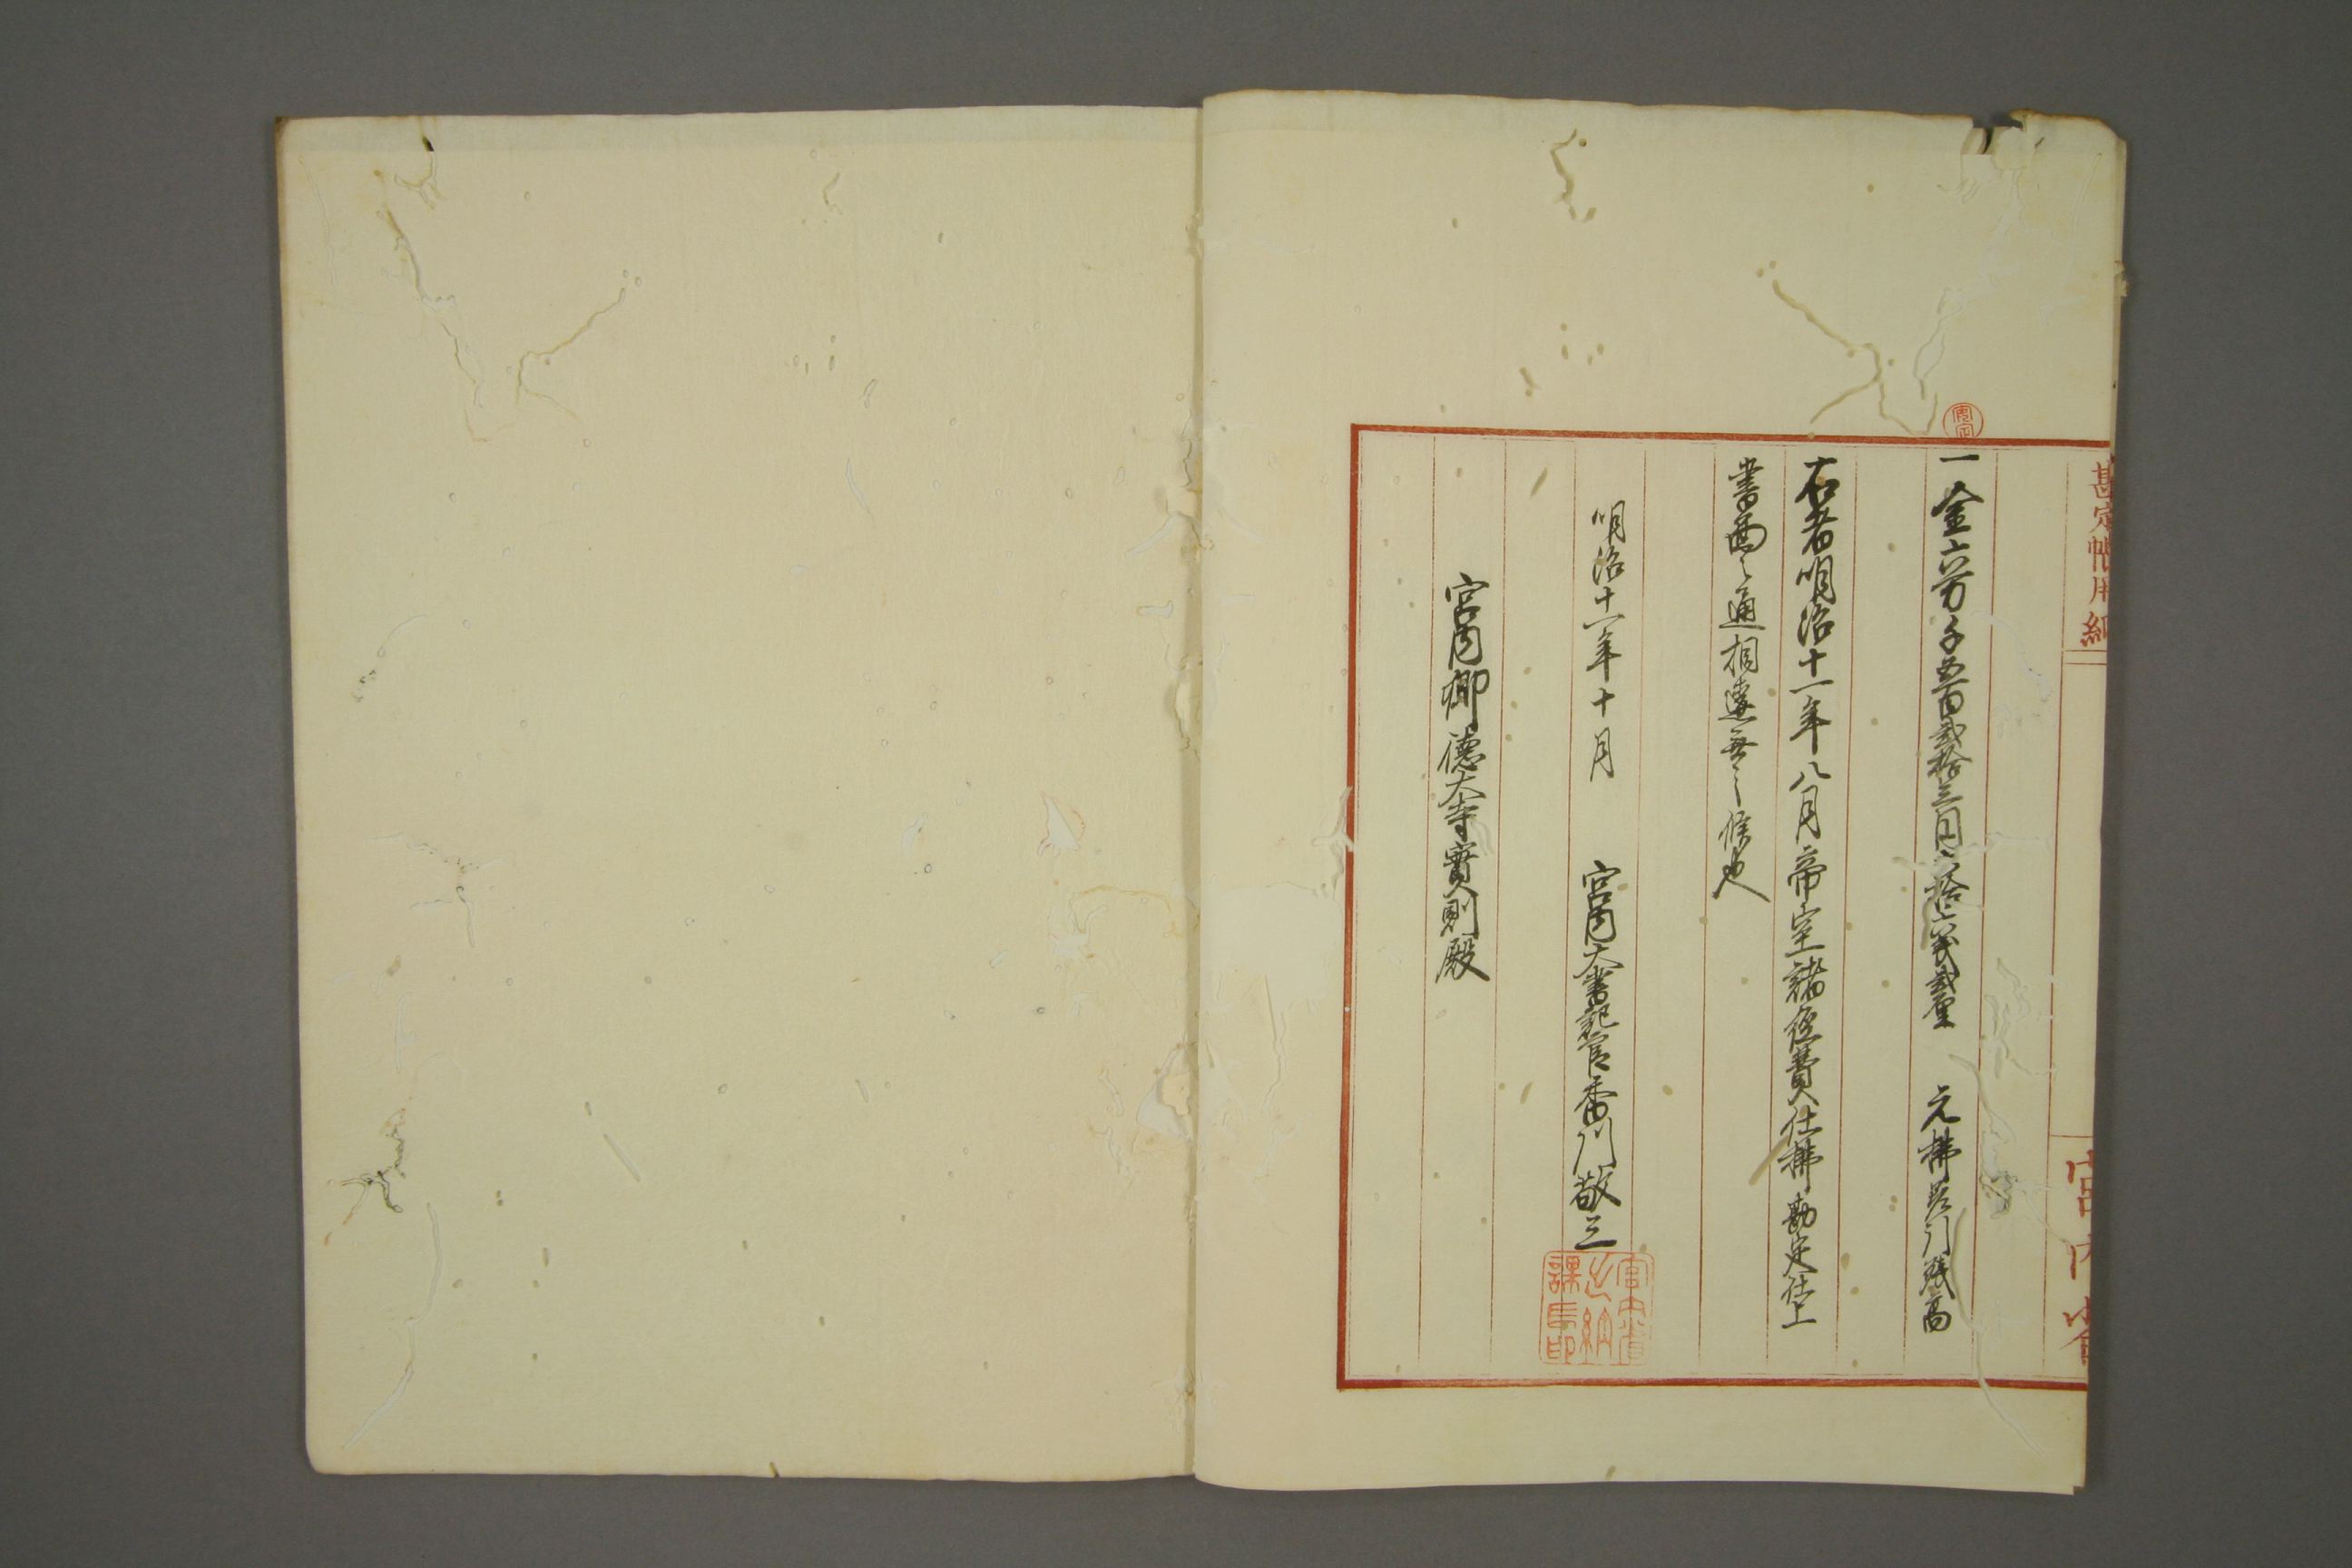 勘定帳用紙
宮内省
一金六万千五百貮拾三円六拾六銭貮厘 元拂差引残高
右者明治十一年八月帝室諸経費仕拂勘定仕上
書面之通相違無之候也
明治十一年十月 宮内大書記官香川敬三
宮内省出納課長印
宮内卿徳大寺實則殿